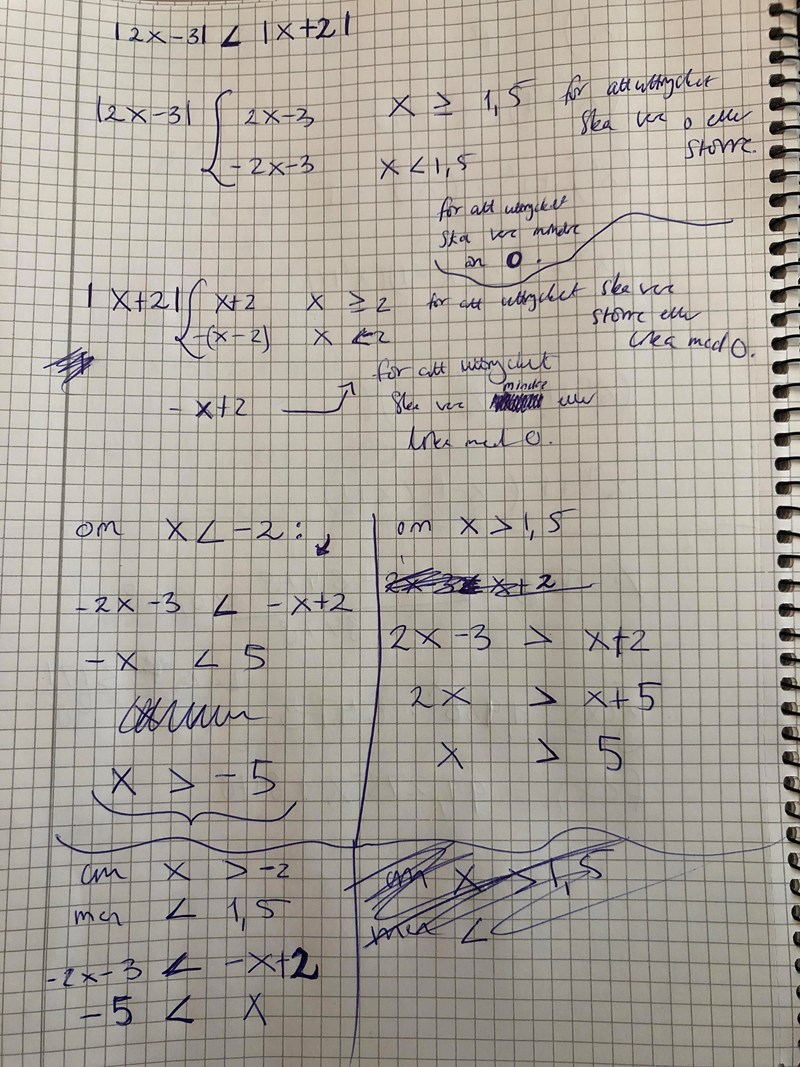 |2x-3| < |x+2|
|2x-3| { 2x-3 x ≥ 1,5 för att uttrycket
ska var 0 eller
större.
-2x-3 x < 1,5
för att uttrycket
ska var mindre
än 0.
|x+2| { x+2 x ≥ 2 för att uttrycket ska var
större eller
lika med 0.
-(x-2) x < 2
för att uttrycket
-x+2
ska var mindre eller
lika med 0.
om x < -2:
-2x-3 < -x+2
-x < 5
x > -5
om x > 1,5
2x-3 > x+2
2x > x+5
x > 5
om x > -2
men < 1,5
-2x-3 < -x+2
-5 < x
om x > 1,5
men <